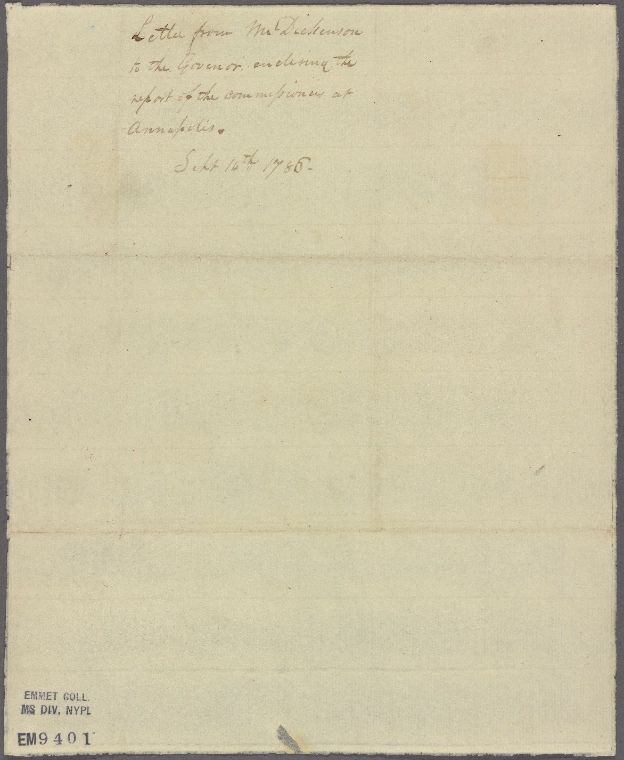 Letter from Mr Dickenson
to the Govenor, enclosing the
report of the commissioners at
Annapolis.
Sept 14th 1786-
EMMET COLL.
MS DIV, NYPL
EM9401